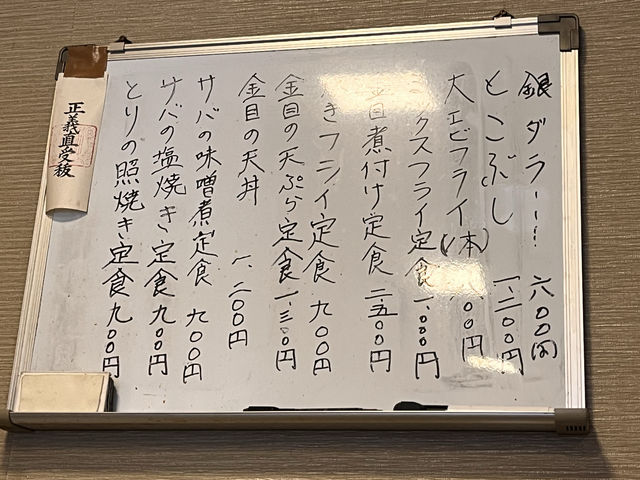 銀ダラー!! 六〇〇円
とこぶし 一、二〇〇円
大エビフライ(一本) 〇〇円
クスフライ定食 一、〇〇〇円
目煮付け定食 二、五〇〇円
きフライ定食 九〇〇円
金目の天ぷら定食 一、三〇〇円
金目の天丼 一、二〇〇円
サバの味噌煮定食 九〇〇円
サバの塩焼き定食 九〇〇円
とりの照焼き定食 九〇〇円
正義直受株